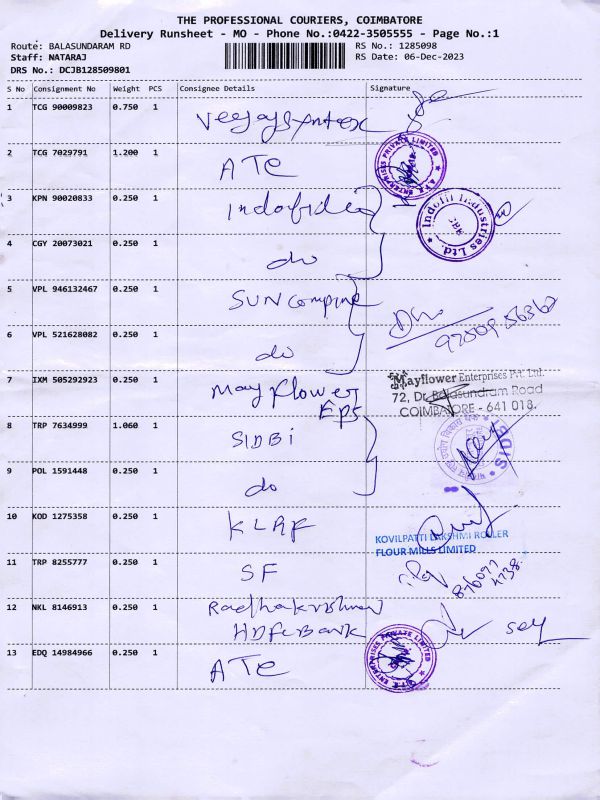 THE PROFESSIONAL COURIERS, COIMBATORE
Delivery Runsheet - MO - Phone No.:0422-3505555 - Page No.:1
Route: BALASUNDARAM RD
RS No.: 1285098
Staff: NATARAJ
RS Date: 06-Dec-2023
DRS No.: DCJB128509801
S No Consignment No Weight PCS Consignee Details Signature
1 TCG 90009823 0.750 1
2 TCG 7029791 1.200 1 ATE
ATE ENTERPRISES PRIVATE LIMITED
3 KPN 90020833 0.250 1
Indofil Industries Ltd.
4 CGY 20073021 0.250 1 do
5 VPL 946132467 0.250 1 SUN
6 VPL 521628082 0.250 1 do
7 IXM 505292923 0.250 1 Mayflower EPS
Mayflower Enterprises Pvt. Ltd.
72, Dr. Balasundram Road
COIMBATORE - 641 018.
8 TRP 7634999 1.060 1 SIDBI
SIDB
9 POL 1591448 0.250 1 do
10 KOD 1275358 0.250 1 KLRF
KOVILPATTI LAKSHMI ROLLER
FLOUR MILLS LIMITED
11 TRP 8255777 0.250 1 SF
12 NKL 8146913 0.250 1 Radhakrishnan
HDFC Bank
13 EDQ 14984966 0.250 1 ATE
ATE ENTERPRISES PRIVATE LIMITED